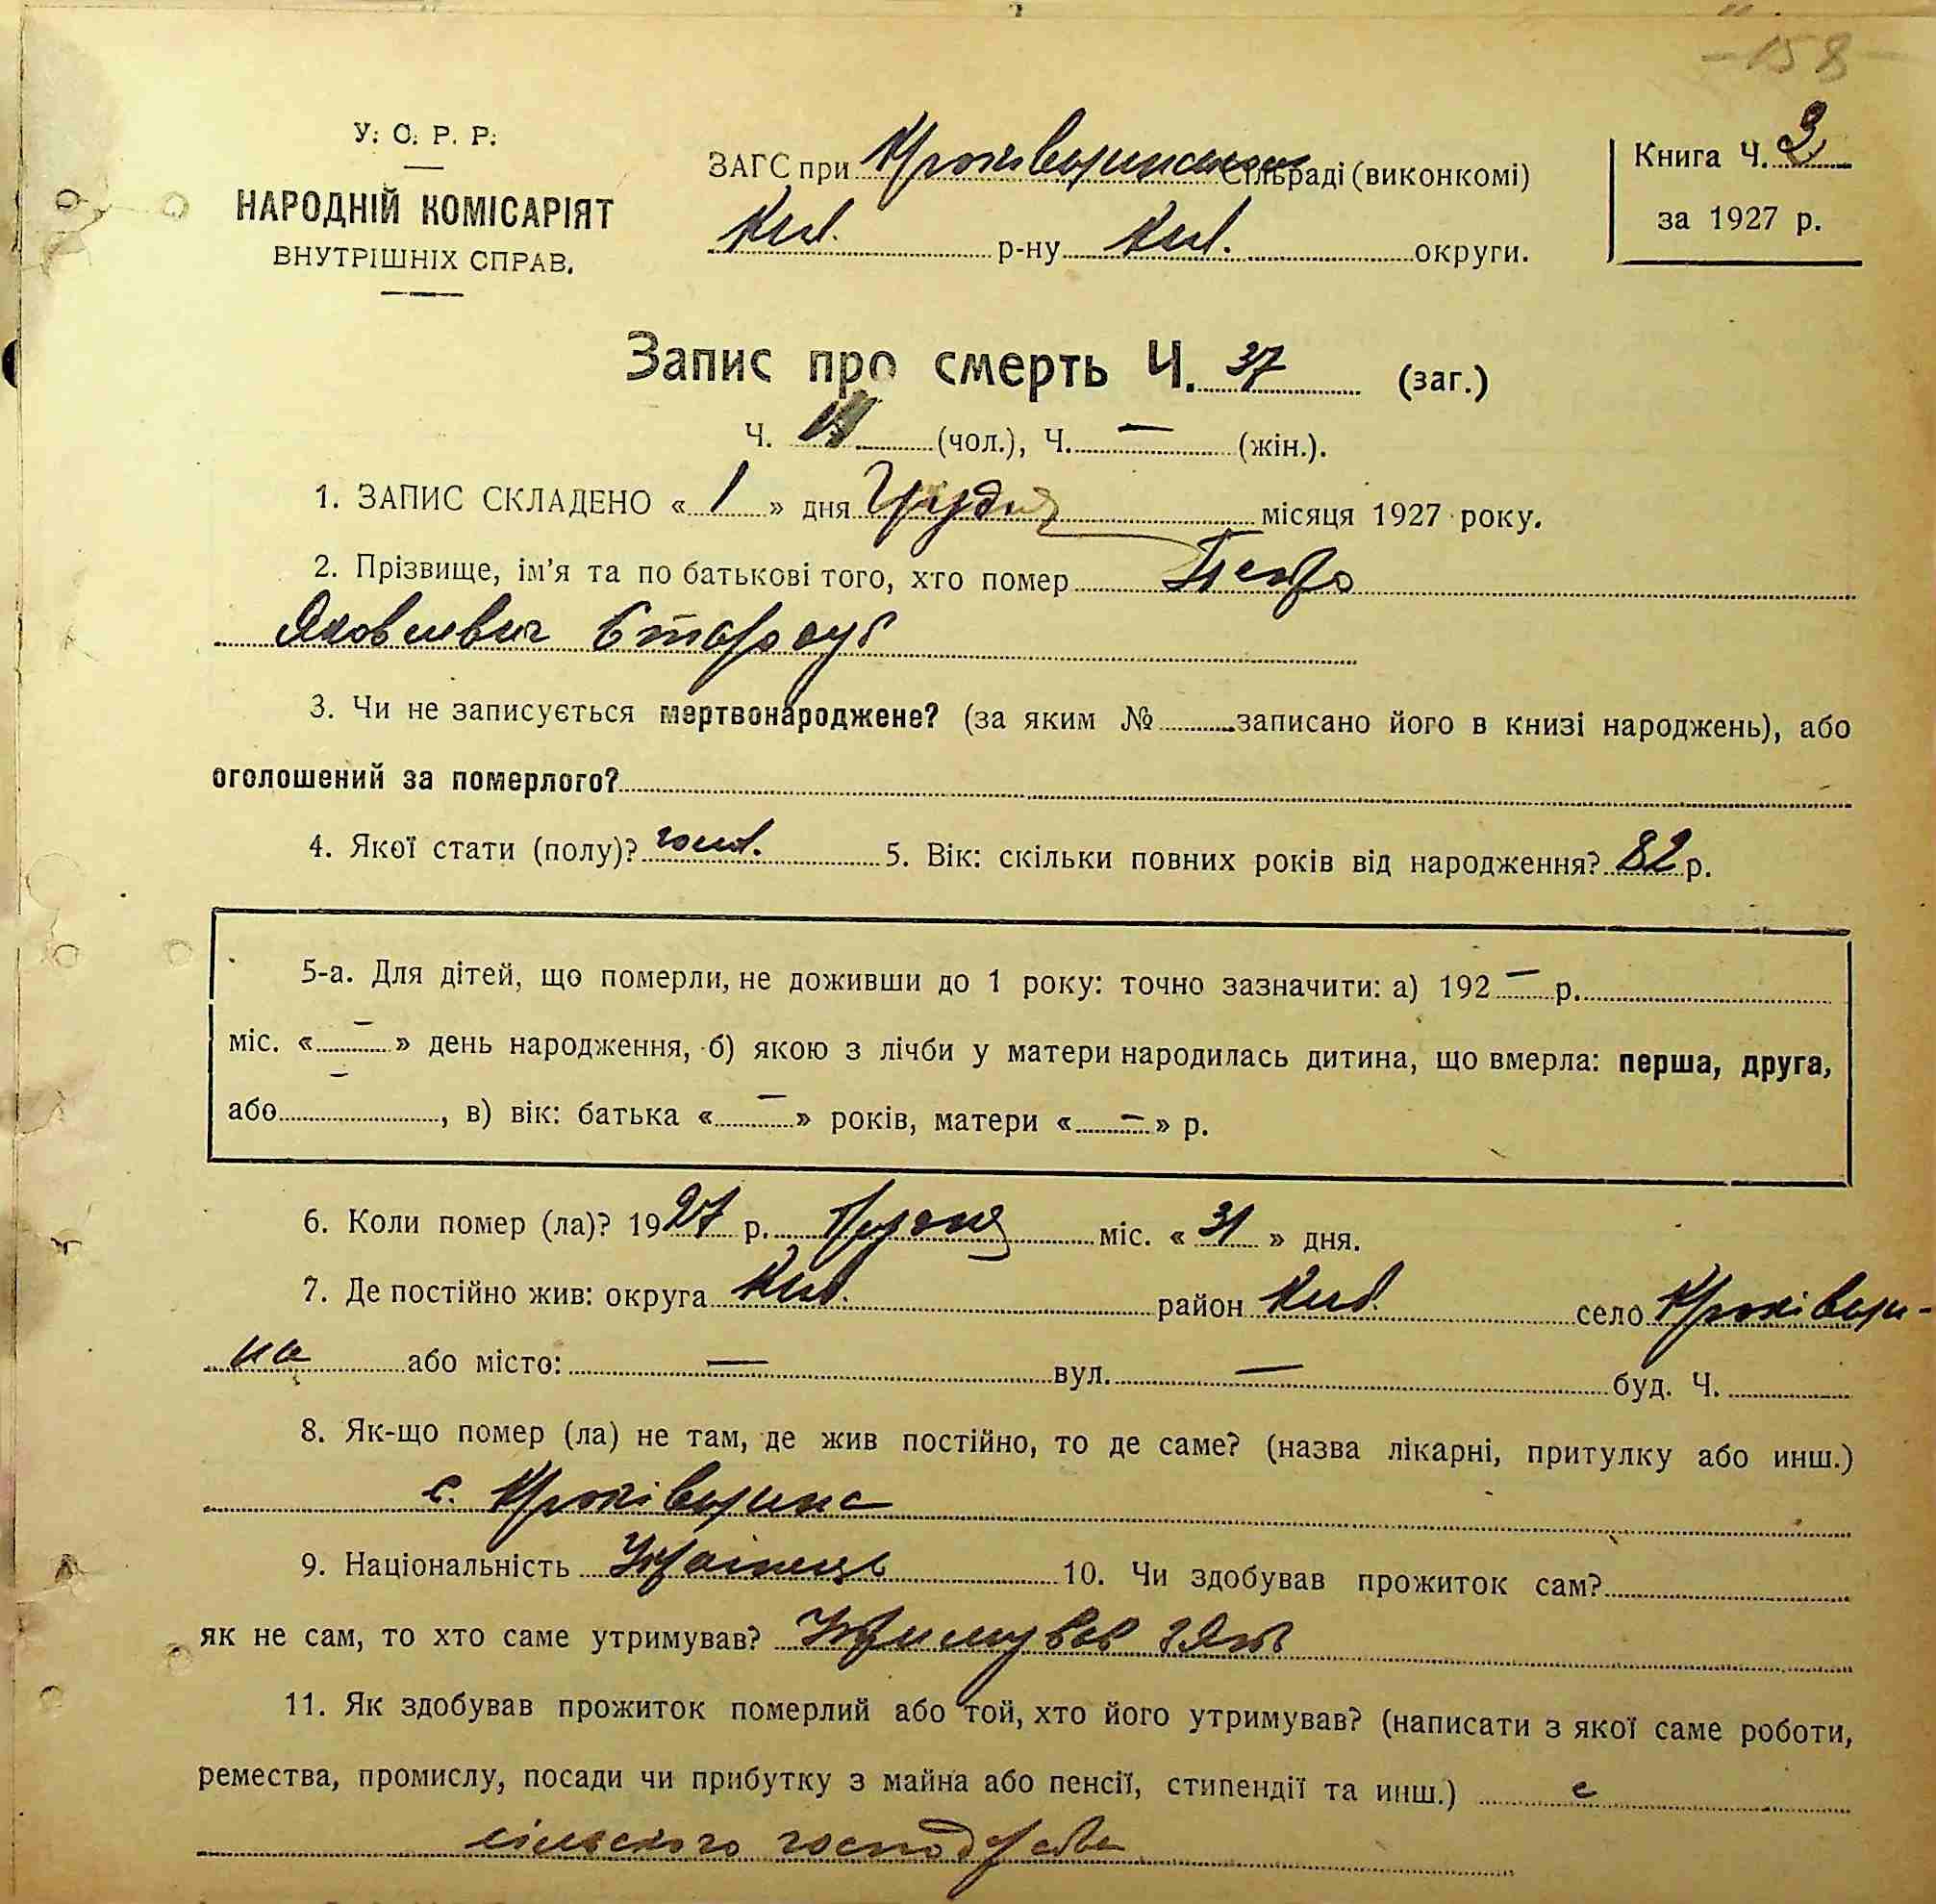 -158-
У. С. Р. Р.
НАРОДНІЙ КОМІСАРІЯТ
ВНУТРІШНІХ СПРАВ.
ЗАГС при сільраді (виконкомі)
Київ. р-ну Київ. округи.
Книга Ч. 3
за 1927 р.
Запис про смерть Ч. 37 (заг.)
Ч. (чол.), Ч. — (жін.).
1. ЗАПИС СКЛАДЕНО « 1 » дня Грудня місяця 1927 року.
2. Прізвище, ім’я та по батькові того, хто помер Петро
Яковлевич Сторожук
3. Чи не записується мертвонароджене? (за яким № записано його в книзі народжень), або
оголошений за померлого?
4. Якої стати (полу)? чол. 5. Вік: скільки повних років від народження? 82 р.
5-а. Для дітей, що померли, не доживши до 1 року: точно зазначити: а) 192 — р.
міс. « — » день народження, б) якою з лічби у матери народилась дитина, що вмерла: перша, друга,
або — , в) вік: батька « — » років, матери « — » р.
6. Коли помер (ла)? 1927 р. міс. « 31 » дня.
7. Де постійно жив: округа Київ. район Київ. село Крюківщи-
на або місто: — вул. — буд. Ч.
8. Як-що помер (ла) не там, де жив постійно, то де саме? (назва лікарні, притулку або инш.)
с. Крюківщина
9. Національність Українець 10. Чи здобував прожиток сам?
як не сам, то хто саме утримував? Утримував зять
11. Як здобував прожиток померлий або той, хто його утримував? (написати з якої саме роботи,
ремества, промислу, посади чи прибутку з майна або пенсії, стипендії та инш.) с
сільського господарства